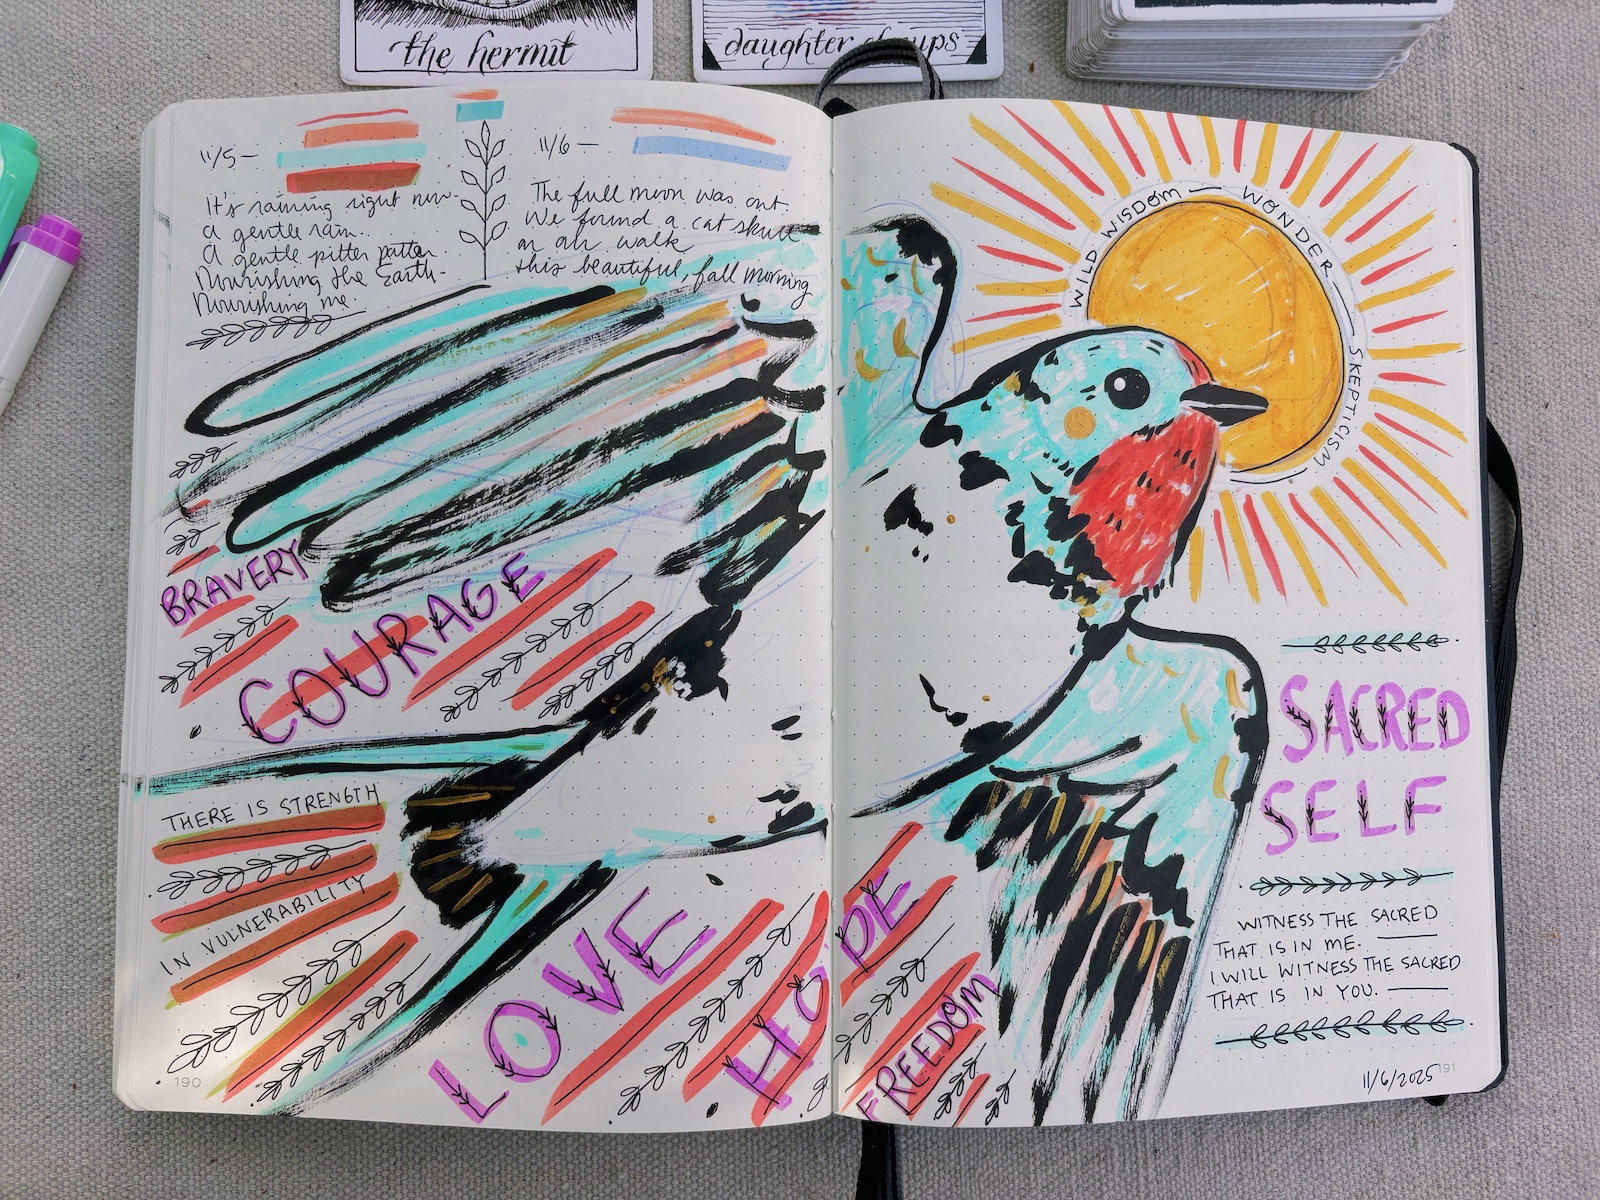 the hermit
daughter of cups
11/5 —
It's raining right now-
a gentle rain.
A gentle pitter patter
Nourishing the Earth-
Nourishing me.
11/6 —
The full moon was out.
We found a cat skull
on our walk
this beautiful, fall morning
WILD WISDOM — WONDER — SKEPTICISM
BRAVERY
COURAGE
THERE IS STRENGTH
IN VULNERABILITY
LOVE
HOPE
FREEDOM
SACRED
SELF
WITNESS THE SACRED
THAT IS IN ME. —
I WILL WITNESS THE SACRED
THAT IS IN YOU. —
11/6/2025
190
191